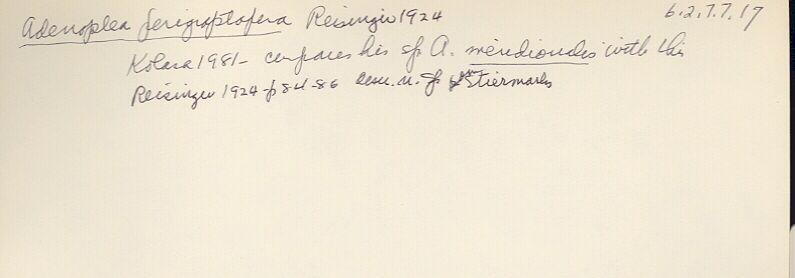 Adenoplea ferigraptofera Reisinger 1924 6.2.7.7.17
Kolasa 1981 - compares his sp A. meridionalis with this
Reisinger 1924 - p 84-86 desc. n. sp Stiermark